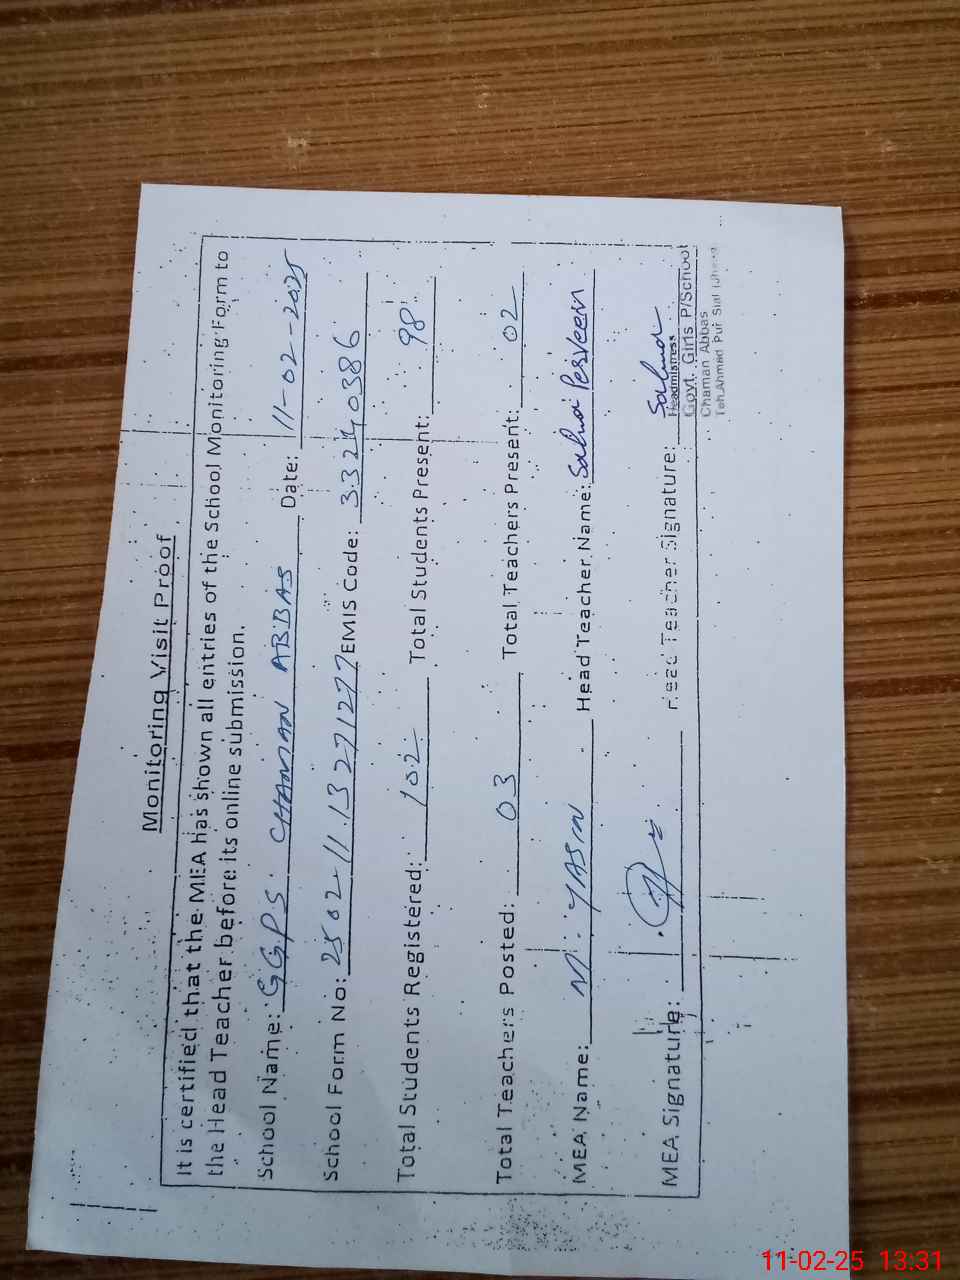 Monitoring Visit Proof
It is certified that the MEA has shown all entries of the School Monitoring Form to
the Head Teacher before its online submission.
School Name: GGPS CHAMAN ABBAS Date: 11-02-2025
School Form No: 2502-11.13271277 EMIS Code: 33240386
Total Students Registered: 102 Total Students Present: 98
Total Teachers Posted: 03 Total Teachers Present: 02
MEA Name: M. YASIN Head Teacher Name: Salma Perveen
MEA Signature: Head Teacher Signature: Salma
Headmistress
Govt. Girls P/School
Chaman Abbas
Teh. Ahmed Pur Sial
11-02-25 13:31